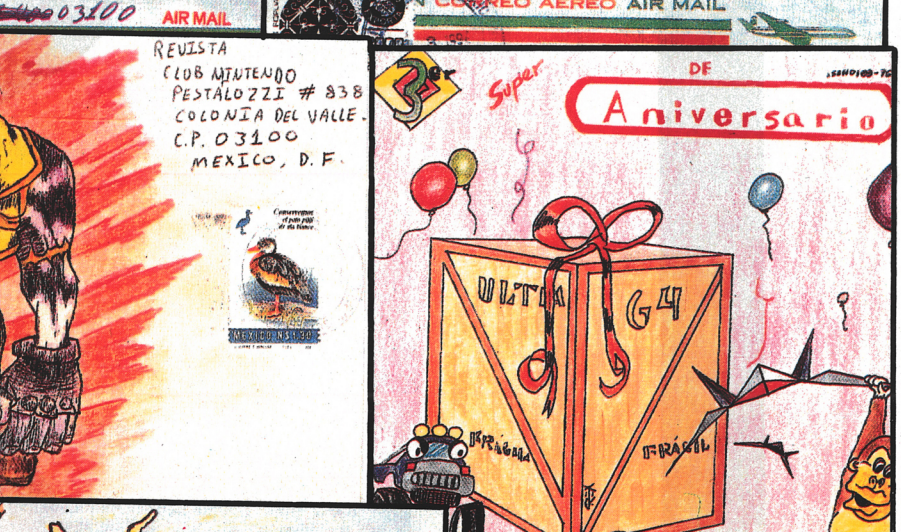 03100 AIR MAIL
CORREO AEREO AIR MAIL
REVISTA
CLUB NINTENDO
PESTALOZZI # 838
COLONIA DEL VALLE.
C.P. 03100
MEXICO, D.F.
Conservemos
el pato pijiji
de ala blanca
MEXICO N$1.80
3er
Super
DE
Aniversario
ULTRA
64
FRÁGIL
FRÁGIL